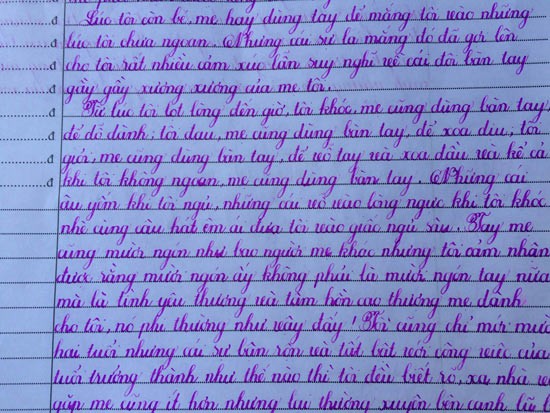 Lúc tôi còn bé, mẹ hay dùng tay để mắng tôi vào những
lúc tôi chưa ngoan. Nhưng cái sự la mắng đó đã gợi lên
cho tôi rất nhiều cảm xúc lẫn suy nghĩ về cái đôi bàn tay
gầy gầy xương xương của mẹ tôi.
Từ lúc tôi lọt lòng đến giờ, tôi khóc, mẹ cũng dùng bàn tay,
để dỗ dành; tôi đau, mẹ cũng dùng bàn tay, để xoa dịu; tôi
giỏi, mẹ cũng dùng bàn tay, để vỗ tay và xoa đầu và kể cả
khi tôi không ngoan, mẹ cũng dùng bàn tay. Những cái
âu yếm khi tôi ngủ, những cái vỗ vào lồng ngực khi tôi khóc
nhè cùng câu hát êm ái đưa tôi vào giấc ngủ sâu. Tay mẹ
cũng mười ngón như bao người mẹ khác nhưng tôi cảm nhận
được rằng mười ngón ấy không phải là mười ngón tay nữa
mà là tình yêu thương và tâm hồn cao thượng mẹ dành
cho tôi, nó phi thường như vậy đấy! Tôi cũng chỉ mới mười
hai tuổi nhưng cái sự bận rộn và tất bật với công việc của
tuổi trưởng thành như thế nào thì tôi đều biết rõ, xa nhà và
gặp mẹ cũng ít hơn nhưng lại thường xuyên bên cạnh